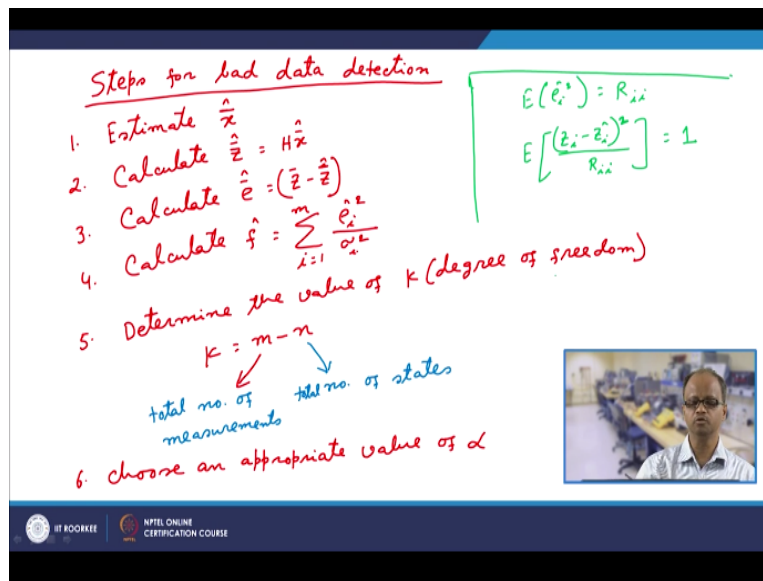 Steps for bad data detection
1. Estimate x̂
2. Calculate ẑ = Hx̂
3. Calculate ê = (z̄ - ẑ)
4. Calculate f̂ = Σ_{i=1}^{m} ê_i² / σ_i²
5. Determine the value of K (degree of freedom)
K = m - n
total no. of measurements
total no. of states
6. choose an appropriate value of α
E(ê_i²) = R_ii
E[(z_i - ẑ_i)² / R_ii] = 1
IIT ROORKEE
NPTEL ONLINE
CERTIFICATION COURSE